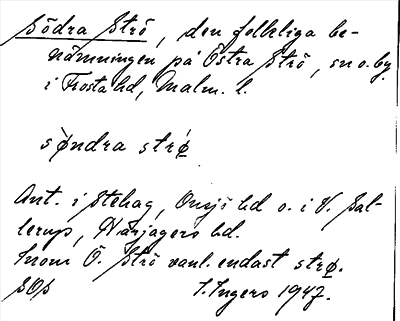 Södra Strö, den folkliga be-
nämningen på Östra Strö, sn o. by
i Frosta hd, Malm. l.
sø̀ndra strǿ̨
Ant. i Stehag, Onsjö hd o. i V. Sal-
lerup, Harjagers hd.
Inom Ö. Strö vanl. endast strø̨.
SOS
I. Ingers 1947.